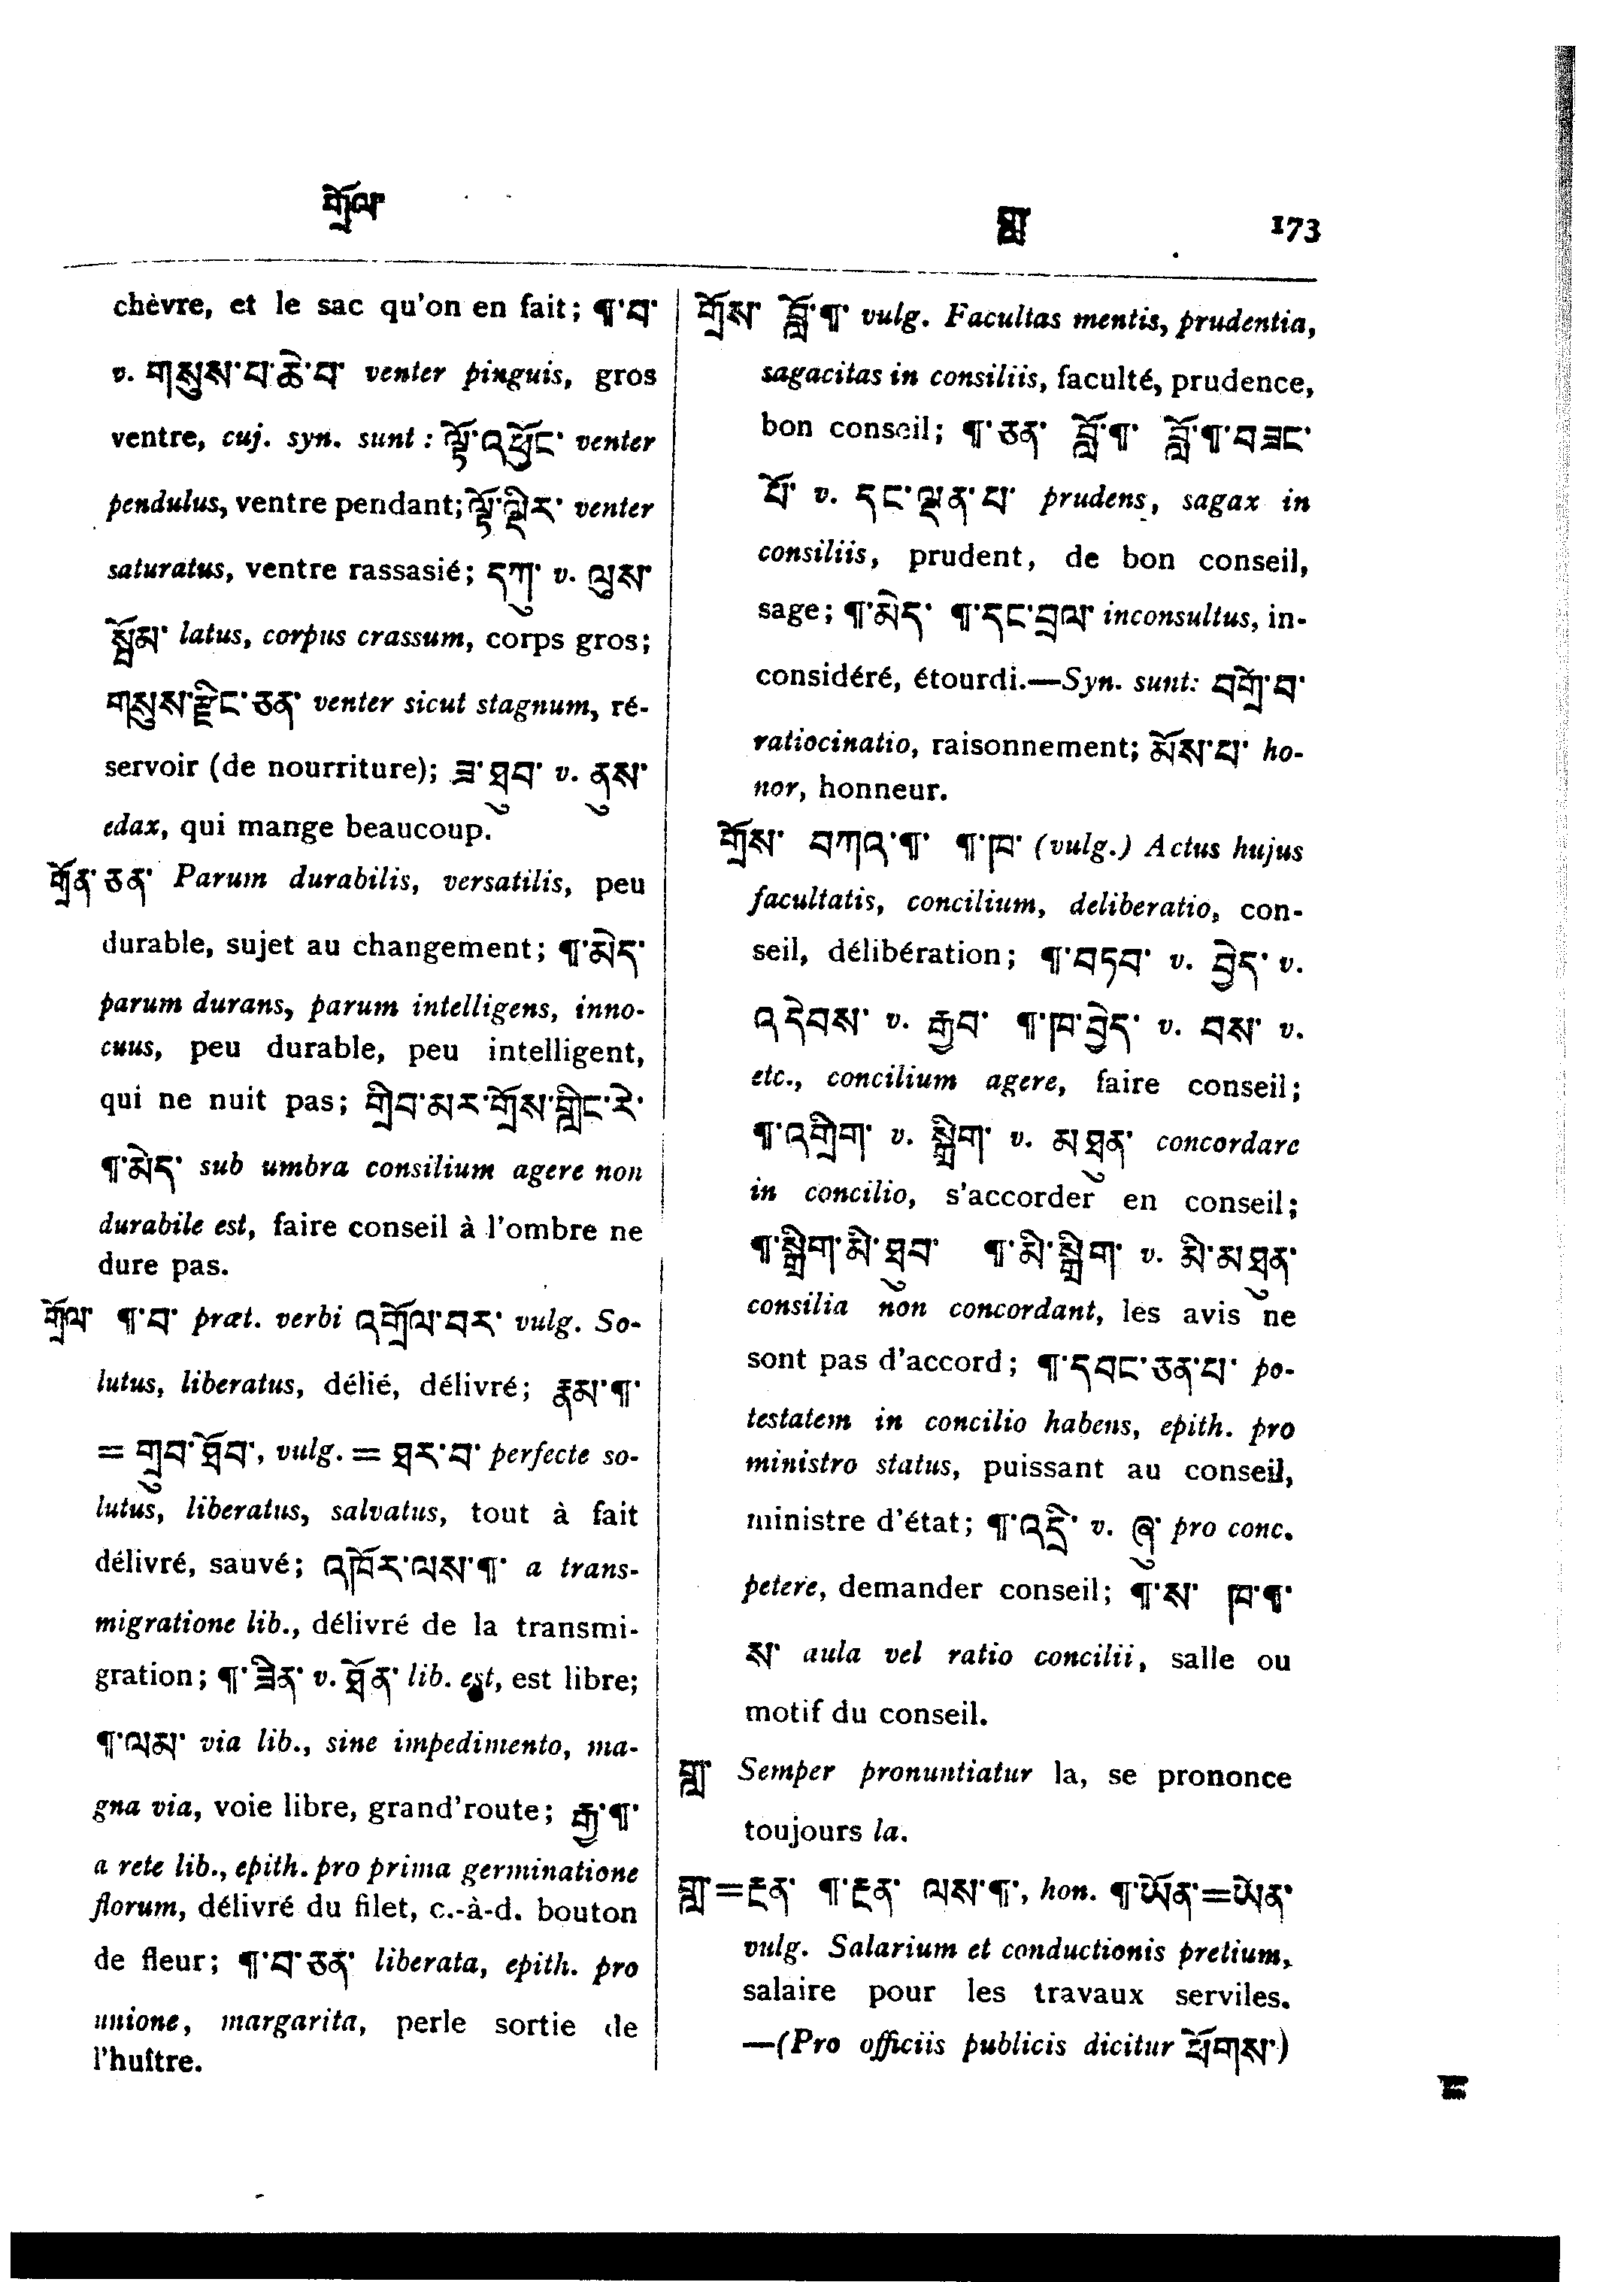 གྲོལ་
གླ
173
chèvre, et le sac qu'on en fait; ¶་བ་
v. གསུས་པ་ཆེ་བ་ venter pinguis, gros
ventre, cuj. syn. sunt: ལྟོ་འཕྱོང་ venter
pendulus, ventre pendant; ལྟོ་ལྡིར་ venter
saturatus, ventre rassasié; དཀུ་ v. ལུས་
སྦོམ་ latus, corpus crassum, corps gros;
གསུས་རྫིང་ཅན་ venter sicut stagnum, ré-
servoir (de nourriture); ཟ་ཐུབ་ v. ནུས་
edax, qui mange beaucoup.
གྲོན་ཅན་ Parum durabilis, versatilis, peu
durable, sujet au changement; ¶་མེད་
parum durans, parum intelligens, inno-
cuus, peu durable, peu intelligent,
qui ne nuit pas; གྲིབ་མར་གྲོས་གླིང་རེ་
¶་མེད་ sub umbra consilium agere non
durabile est, faire conseil à l'ombre ne
dure pas.
གྲོལ་ ¶་བ་ præt. verbi འགྲོལ་བར་ vulg. So-
lutus, liberatus, délié, délivré; རྣམ་¶་
= གྲུབ་ཐོབ་, vulg. = ཐར་བ་ perfecte so-
lutus, liberatus, salvatus, tout à fait
délivré, sauvé; འཁོར་ལས་¶་ a trans-
migratione lib., délivré de la transmi-
gration; ¶་ཟིན་ v. ཐོན་ lib. est, est libre;
¶་ལམ་ via lib., sine impedimento, ma-
gna via, voie libre, grand'route; རྒྱ་¶་
a rete lib., epith. pro prima germinatione
florum, délivré du filet, c.-à-d. bouton
de fleur; ¶་བ་ཅན་ liberata, epith. pro
unione, margarita, perle sortie de
l'huître.
གྲོས་ བློ་¶་ vulg. Facultas mentis, prudentia,
sagacitas in consiliis, faculté, prudence,
bon conseil; ¶་ཅན་ བློ་¶་ བློ་¶་བཟང་
པོ་ v. དང་ལྡན་པ་ prudens, sagax in
consiliis, prudent, de bon conseil,
sage; ¶་མེད་ ¶་དང་བྲལ་ inconsultus, in-
considéré, étourdi.—Syn. sunt: བགྲོ་བ་
ratiocinatio, raisonnement; མོས་པ་ ho-
nor, honneur.
གྲོས་ བཀའ་¶་ ¶་ཁ་ (vulg.) Actus hujus
facultatis, concilium, deliberatio, con-
seil, délibération; ¶་བཏབ་ v. བྱེད་ v.
འདེབས་ v. རྒྱབ་ ¶་ཁ་བྱེད་ v. བས་ v.
etc., concilium agere, faire conseil;
¶་འགྲིག་ v. སྒྲིག་ v. མཐུན་ concordare
in concilio, s'accorder en conseil;
¶་སྒྲིག་མི་ཐུབ་ ¶་མི་སྒྲིག་ v. མི་མཐུན་
consilia non concordant, les avis ne
sont pas d'accord; ¶་དབང་ཅན་པ་ po-
testatem in concilio habens, epith. pro
ministro status, puissant au conseil,
ministre d'état; ¶་འདྲི་ v. ཞུ་ pro conc.
petere, demander conseil; ¶་ས་ ཁ་¶་
ས་ aula vel ratio concilii, salle ou
motif du conseil.
གླ་ Semper pronuntiatur la, se prononce
toujours la.
གླ་=རྔན་ ¶་རྔན་ ལས་¶་, hon. ¶་ཡོན་=ཡོན་
vulg. Salarium et conductionis pretium,
salaire pour les travaux serviles.
—(Pro officiis publicis dicitur ཕོགས་)